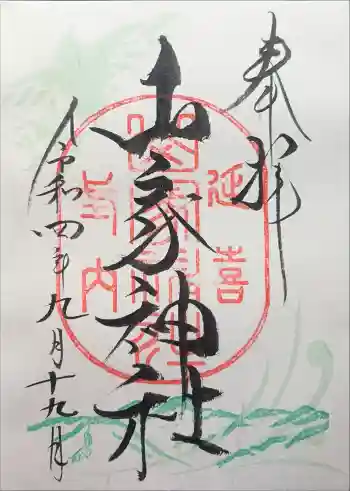 奉拝
山家神社
延喜
式内
令和四年九月十九日